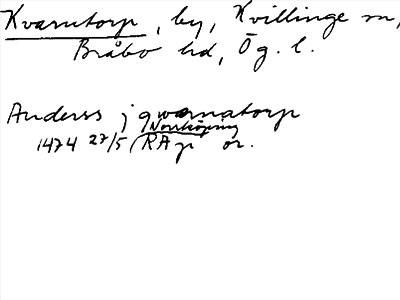 Kvarntorp, by, Kvillinge sn,
Bråbo hd, Ög. l.
Anderss j qwarnatorp
Norrköping
1474 27/5 (RAp or.